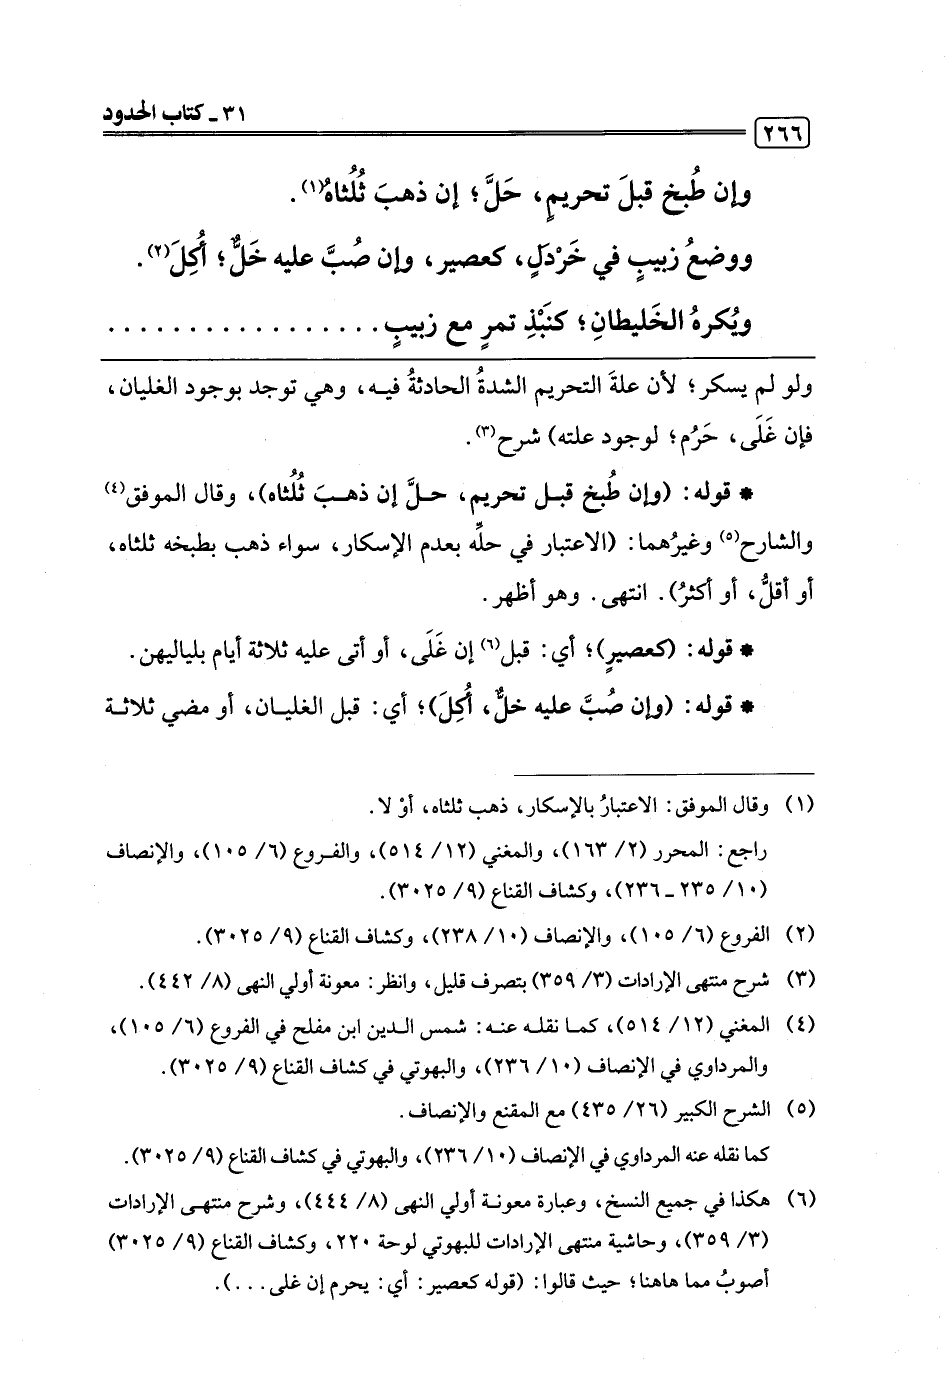 ٣١ ـ كتاب الحدود
٢٦٦
وإن طُبخ قبلَ تحريمٍ، حَلَّ؛ إن ذهبَ ثُلُثاهُ(١).
ووضعُ زبيبٍ في خَرْدَلٍ، كعصير، وإن صُبَّ عليه خَلٌّ؛ أُكِلَ(٢).
ويُكرهُ الخَليطانِ؛ كنَبْذِ تمرٍ مع زبيبٍ . . . . . . . . . . . . . . . . .
ولو لم يسكر؛ لأن علةَ التحريم الشدةُ الحادثةُ فيه، وهي توجد بوجود الغليان،
فإن غَلَى، حَرُم؛ لوجود علته) شرح(٣).
* قوله: (وإن طُبخ قبل تحريم، حلَّ إن ذهبَ ثُلُثاه)، وقال الموفق(٤)
والشارح(٥) وغيرُهما: (الاعتبار في حلِّه بعدم الإسكار، سواء ذهب بطبخه ثلثاه،
أو أقلُّ، أو أكثرُ). انتهى. وهو أظهر.
* قوله: (كعصيرٍ)؛ أي: قبل(٦) إن غَلَى، أو أتى عليه ثلاثة أيام بلياليهن.
* قوله: (وإن صُبَّ عليه خلٌّ، أُكِلَ)؛ أي: قبل الغليان، أو مضي ثلاثة
(١) وقال الموفق: الاعتبارُ بالإسكار، ذهب ثلثاه، أوْ لا.
راجع: المحرر (٢/ ١٦٣)، والمغني (١٢/ ٥١٤)، والفروع (٦/ ١٠٥)، والإنصاف
(١٠/ ٢٣٥ ـ ٢٣٦)، وكشاف القناع (٩/ ٣٠٢٥).
(٢) الفروع (٦/ ١٠٥)، والإنصاف (١٠/ ٢٣٨)، وكشاف القناع (٩/ ٣٠٢٥).
(٣) شرح منتهى الإرادات (٣/ ٣٥٩) بتصرف قليل، وانظر: معونة أولي النهى (٨/ ٤٤٢).
(٤) المغني (١٢/ ٥١٤)، كما نقله عنه: شمس الدين ابن مفلح في الفروع (٦/ ١٠٥)،
والمرداوي في الإنصاف (١٠/ ٢٣٦)، والبهوتي في كشاف القناع (٩/ ٣٠٢٥).
(٥) الشرح الكبير (٢٦/ ٤٣٥) مع المقنع والإنصاف.
كما نقله عنه المرداوي في الإنصاف (١٠/ ٢٣٦)، والبهوتي في كشاف القناع (٩/ ٣٠٢٥).
(٦) هكذا في جميع النسخ، وعبارة معونة أولي النهى (٨/ ٤٤٤)، وشرح منتهى الإرادات
(٣/ ٣٥٩)، وحاشية منتهى الإرادات للبهوتي لوحة ٢٢٠، وكشاف القناع (٩/ ٣٠٢٥)
أصوبُ مما هاهنا؛ حيث قالوا: (قوله كعصير: أي: يحرم إن غلى...).